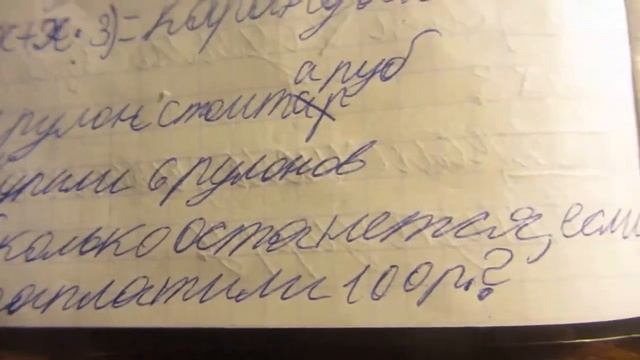 x+x·3)=карандаш
а руб
рулон стоит
упили 6 рулонов
колько останется, если
заплатили 100р.?